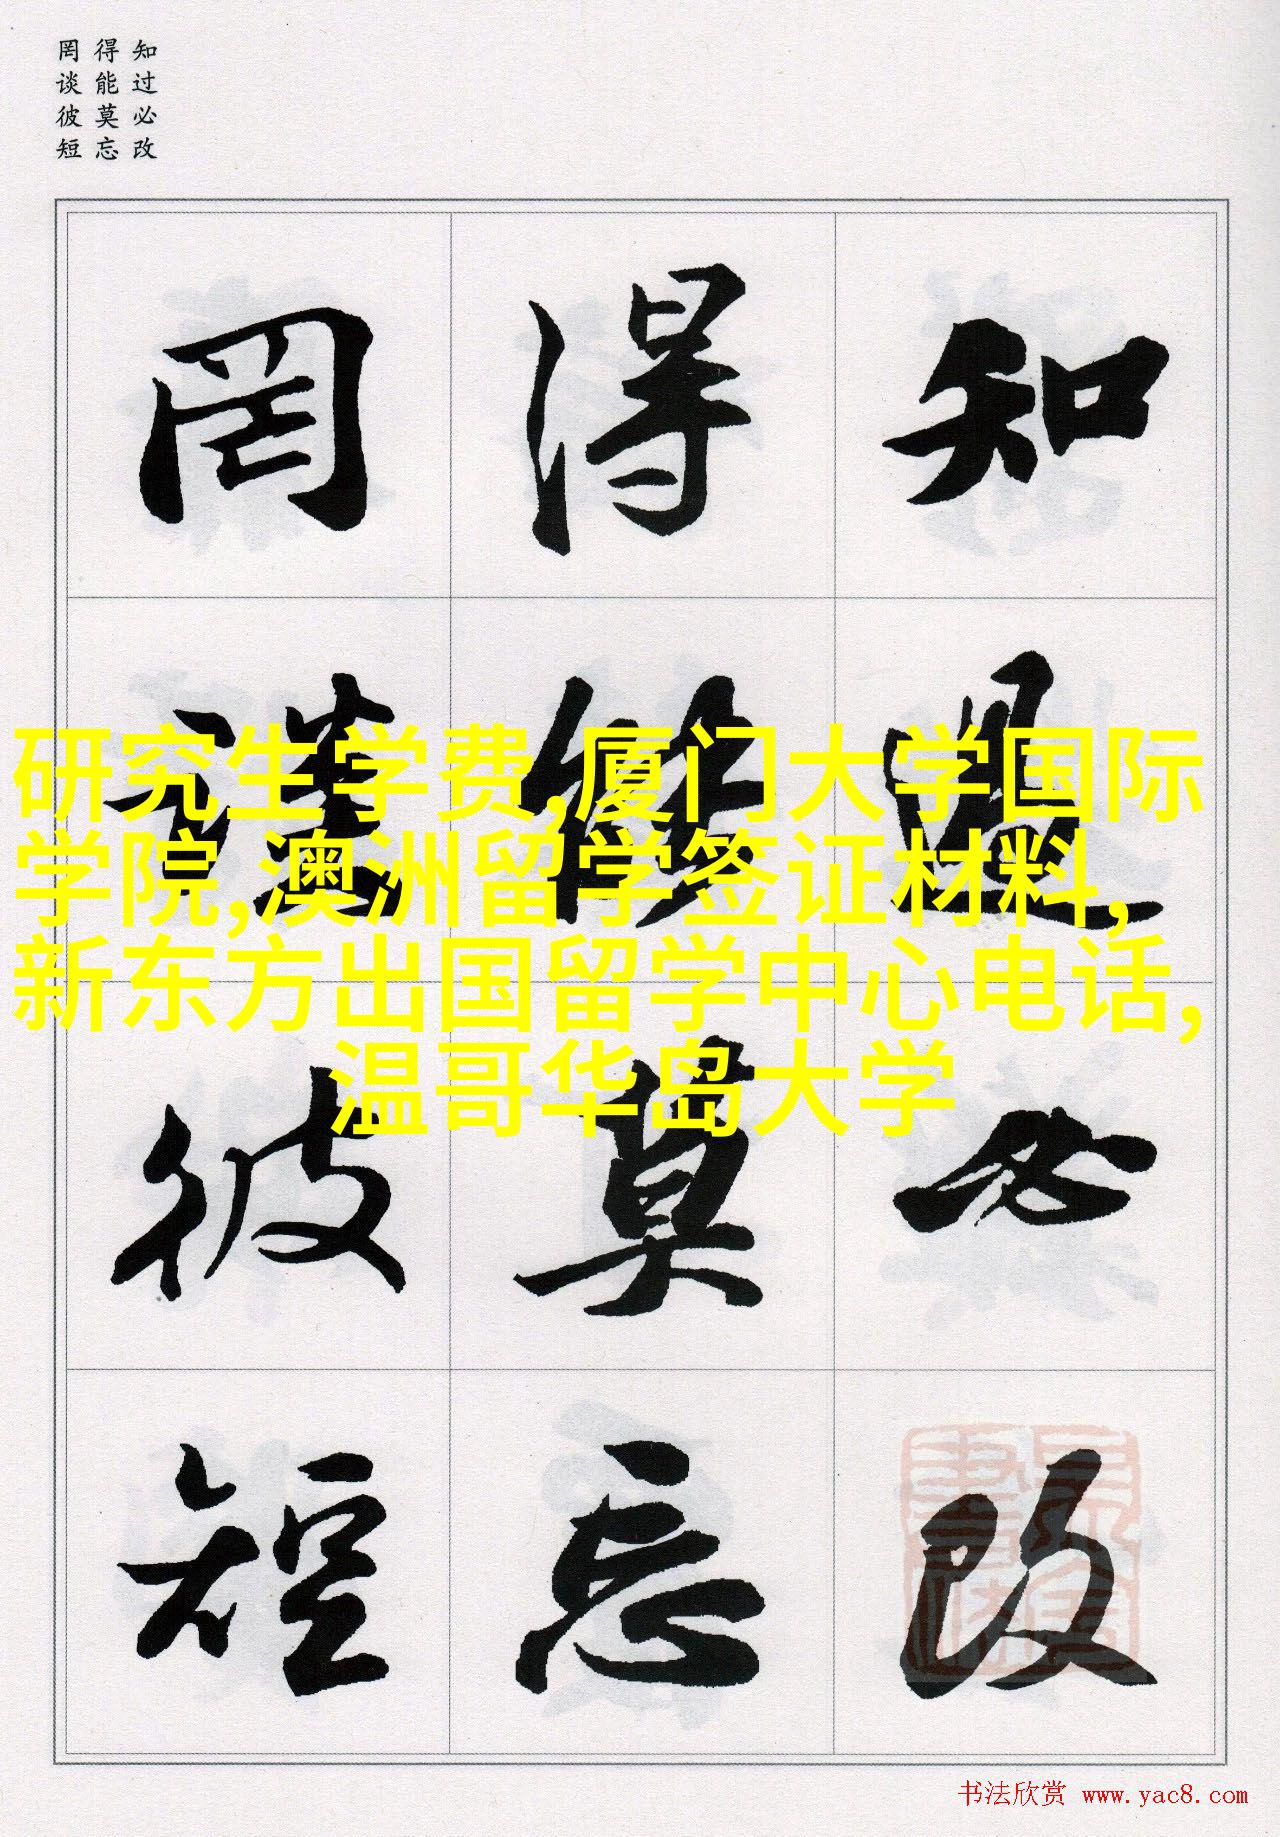 知过必改
得能莫忘
罔谈彼短
知过必改
得能莫忘
罔谈彼短
研究生学费,厦门大学国际
学院,澳洲留学签证材料,
新东方出国留学中心电话,
温哥华岛大学
书法欣赏 www.yac8.com